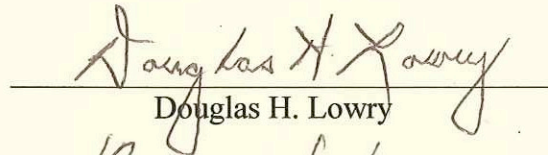 Douglas H. Lowry
Douglas H. Lowry